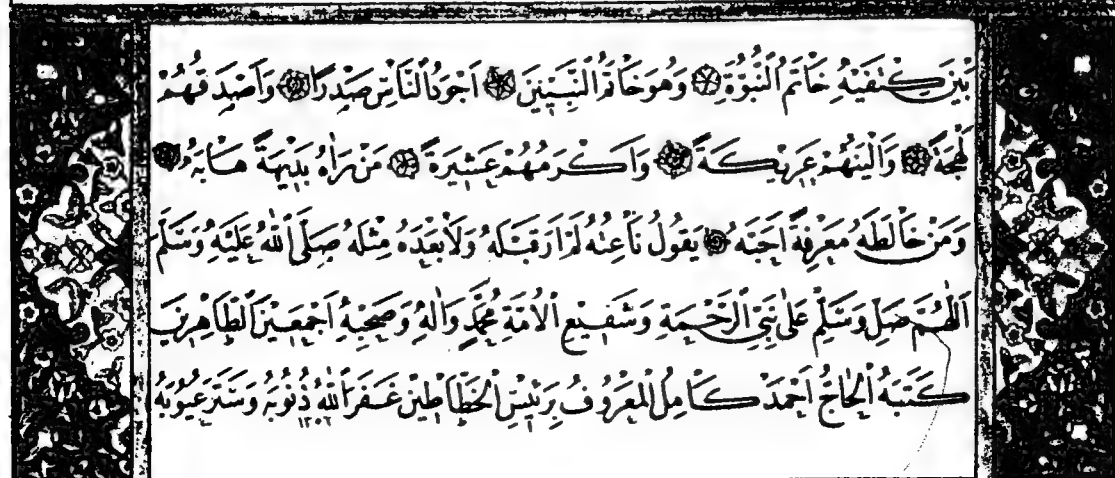 بَيْنَ كَتِفَيْهِ خَاتَمُ النُّبُوَّةِ وَهُوَ خَاتَمُ النَّبِيِّينَ اَجْوَدُ النَّاسِ صَدْرًا وَاَصْدَقُهُمْ
لَهْجَةً وَاَلْيَنُهُمْ عَرِيكَةً وَاَكْرَمُهُمْ عَشِيرَةً مَنْ رَاٰهُ بَدِيهَةً هَابَهُ
وَمَنْ خَالَطَهُ مَعْرِفَةً اَحَبَّهُ يَقُولُ نَاعِتُهُ لَمْ اَرَ قَبْلَهُ وَلَا بَعْدَهُ مِثْلَهُ صَلَّى اللّٰهُ عَلَيْهِ وَسَلَّمَ
اَللّٰهُمَّ صَلِّ وَسَلِّمْ عَلٰى نَبِيِّ الرَّحْمَةِ وَشَفِيعِ الْاُمَّةِ مُحَمَّدٍ وَاٰلِهِ وَصَحْبِهِ اَجْمَعِينَ الطَّاهِرِينَ
كَتَبَهُ الْحَاجُّ اَحْمَدْ كَامِلُ الْمَعْرُوفُ بِرَئِيسِ الْخَطَّاطِينَ غَفَرَ اللّٰهُ ذُنُوبَهُ وَسَتَرَ عُيُوبَهُ ١٣٥٢